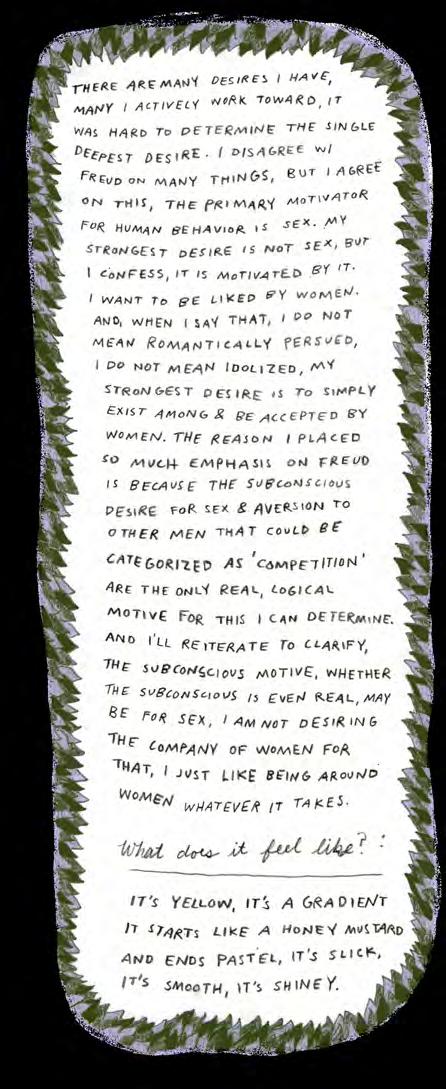 THERE ARE MANY DESIRES I HAVE,
MANY I ACTIVELY WORK TOWARD, IT
WAS HARD TO DETERMINE THE SINGLE
DEEPEST DESIRE. I DISAGREE W/
FREUD ON MANY THINGS, BUT I AGREE
ON THIS, THE PRIMARY MOTIVATOR
FOR HUMAN BEHAVIOR IS SEX. MY
STRONGEST DESIRE IS NOT SEX, BUT
I CONFESS, IT IS MOTIVATED BY IT.
I WANT TO BE LIKED BY WOMEN.
AND, WHEN I SAY THAT, I DO NOT
MEAN ROMANTICALLY PERSUED,
I DO NOT MEAN IDOLIZED, MY
STRONGEST DESIRE IS TO SIMPLY
EXIST AMONG & BE ACCEPTED BY
WOMEN. THE REASON I PLACED
SO MUCH EMPHASIS ON FREUD
IS BECAUSE THE SUBCONSCIOUS
DESIRE FOR SEX & AVERSION TO
OTHER MEN THAT COULD BE
CATEGORIZED AS 'COMPETITION'
ARE THE ONLY REAL, LOGICAL
MOTIVE FOR THIS I CAN DETERMINE.
AND I'LL REITERATE TO CLARIFY,
THE SUBCONSCIOUS MOTIVE, WHETHER
THE SUBCONSCIOUS IS EVEN REAL, MAY
BE FOR SEX, I AM NOT DESIRING
THE COMPANY OF WOMEN FOR
THAT, I JUST LIKE BEING AROUND
WOMEN WHATEVER IT TAKES.
What does it feel like? :
IT'S YELLOW, IT'S A GRADIENT
IT STARTS LIKE A HONEY MUSTARD
AND ENDS PASTEL, IT'S SLICK,
IT'S SMOOTH, IT'S SHINEY.